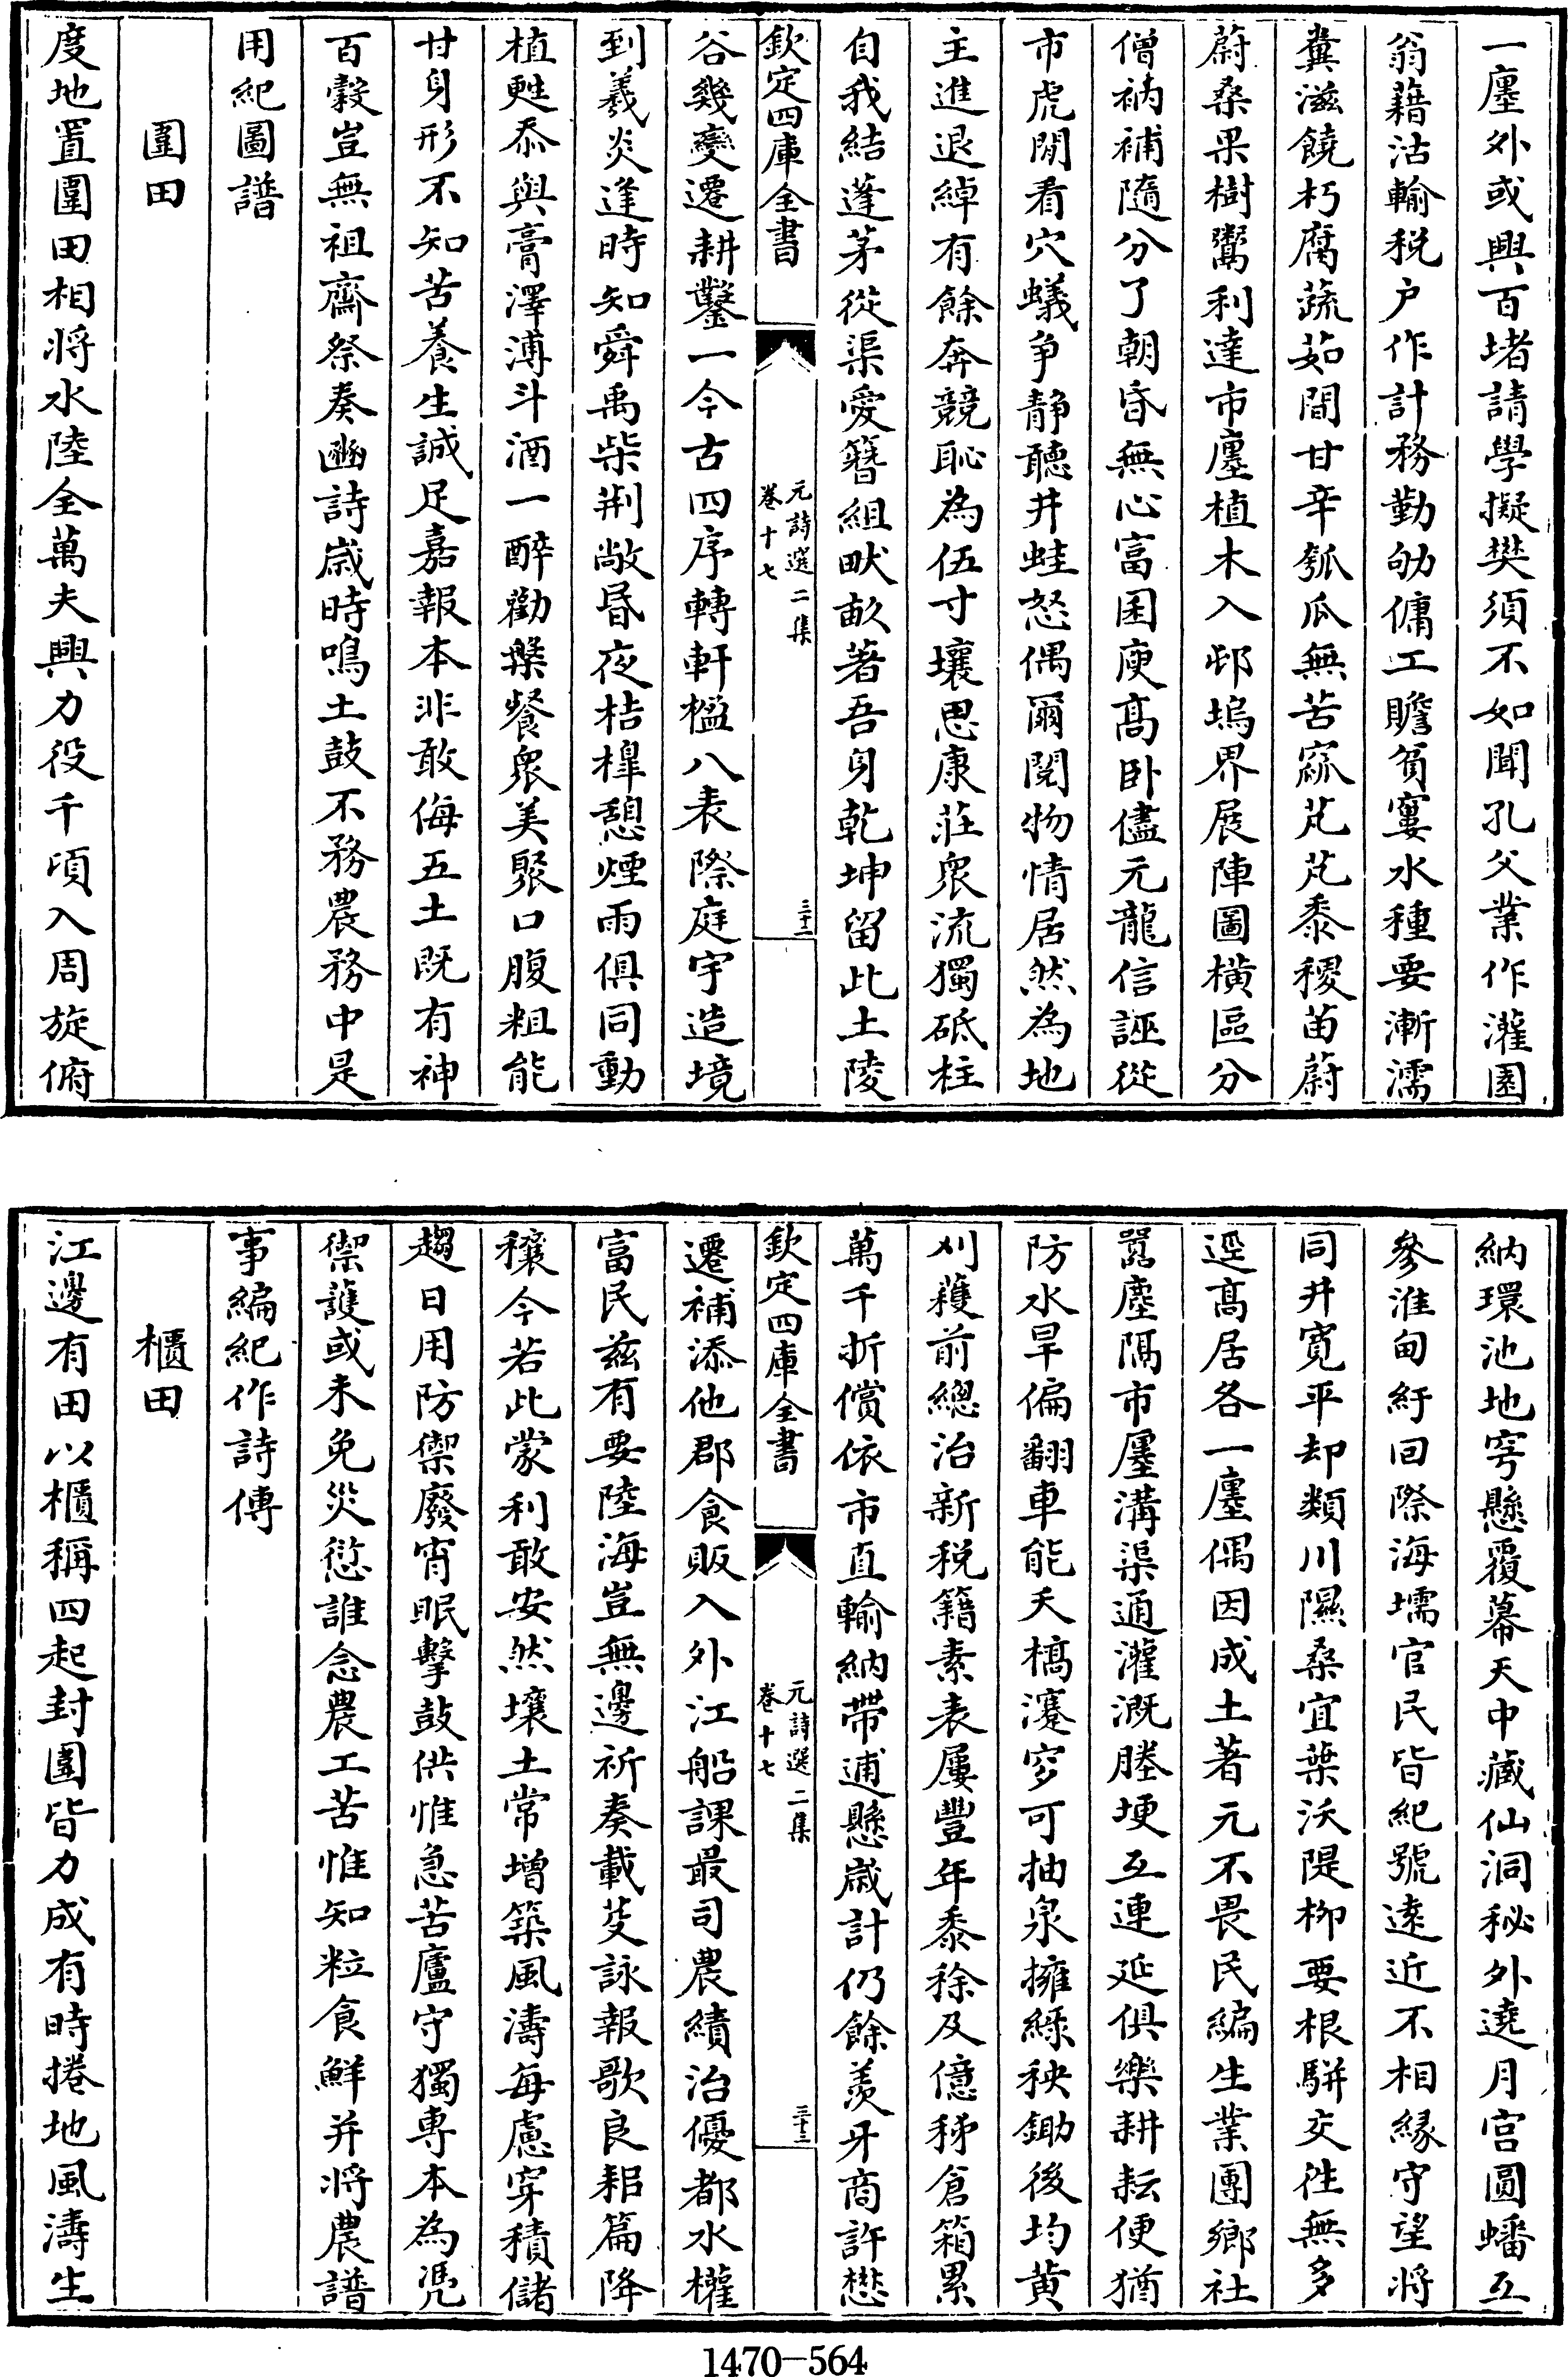 一廛外或興百堵請學擬樊須不如聞孔父業作灌園
翁藉沽輸税户作計務勤劬傭工贍貧窶水種要漸濡
糞滋饒朽腐蔬茹間甘辛瓠瓜無苦窳芃芃黍稷苗蔚
蔚桑果樹鬻利達市廛植木入邨塢界展陣圖横區分
僧衲補隨分了朝昏無心富囷庾髙卧儘元龍信誣從
市虎閒看穴蟻爭靜聽井蛙怒偶爾閱物情居然為地
主進退綽有餘奔競恥為伍寸壤思康莊衆流獨砥柱
自我結蓬茅從渠愛簪組畎畝著吾身乾坤留此土陵
欽定四庫全書
元詩選二集
卷十七
三十二
谷幾變遷耕鑿一今古四序轉軒楹八表際庭宇造境
到羲炎逢時知舜禹柴荆敞昬夜桔槔憩煙雨俱同動
植甦忝與膏澤溥斗酒一醉勸槃餐衆美聚口腹粗能
甘身形不知苦養生誠足嘉報本非敢侮五土既有神
百穀豈無祖齋祭奏豳詩歲時鳴土鼓不務農務中是
用紀圖譜
圍田
度地置圍田相將水陸全萬夫興力役千頃入周旋俯
納環池地穹懸覆幕天中藏仙洞秘外遶月宫圓蟠互
參淮甸紆回際海壖官民皆紀號逺近不相縁守望將
同井寛平却類川隰桑宜葉沃隄栁要根駢交徃無多
逕髙居各一廛偶因成土著元不畏民編生業團鄉社
嚣塵隔市廛溝渠通灌溉塍埂互連延俱樂耕耘便猶
防水旱偏翻車能夭槁瀽穸可抽泉擁緑秧鋤後均黄
刈穫前總治新税籍素表屢豐年黍稌及億秭倉箱累
萬千折償依市直輸納帶逋懸歲計仍餘羡牙商許懋
欽定四庫全書
元詩選二集
卷十七
三十三
遷補添他郡食販入外江船課最司農績治優都水權
富民兹有要陸海豈無邊祈奏載芟詠報歌良耜篇降
穰今若此蒙利敢安然壤土常增築風濤每慮穿積儲
趨日用防禦廢宵眠擊鼓供惟急苦廬守獨専本為凴
禦䕶或未免災愆誰念農工苦惟知粒食鮮并將農譜
事編紀作詩傳
櫃田
江邊有田以櫃稱四起封圍皆力成有時捲地風濤生
1470—564